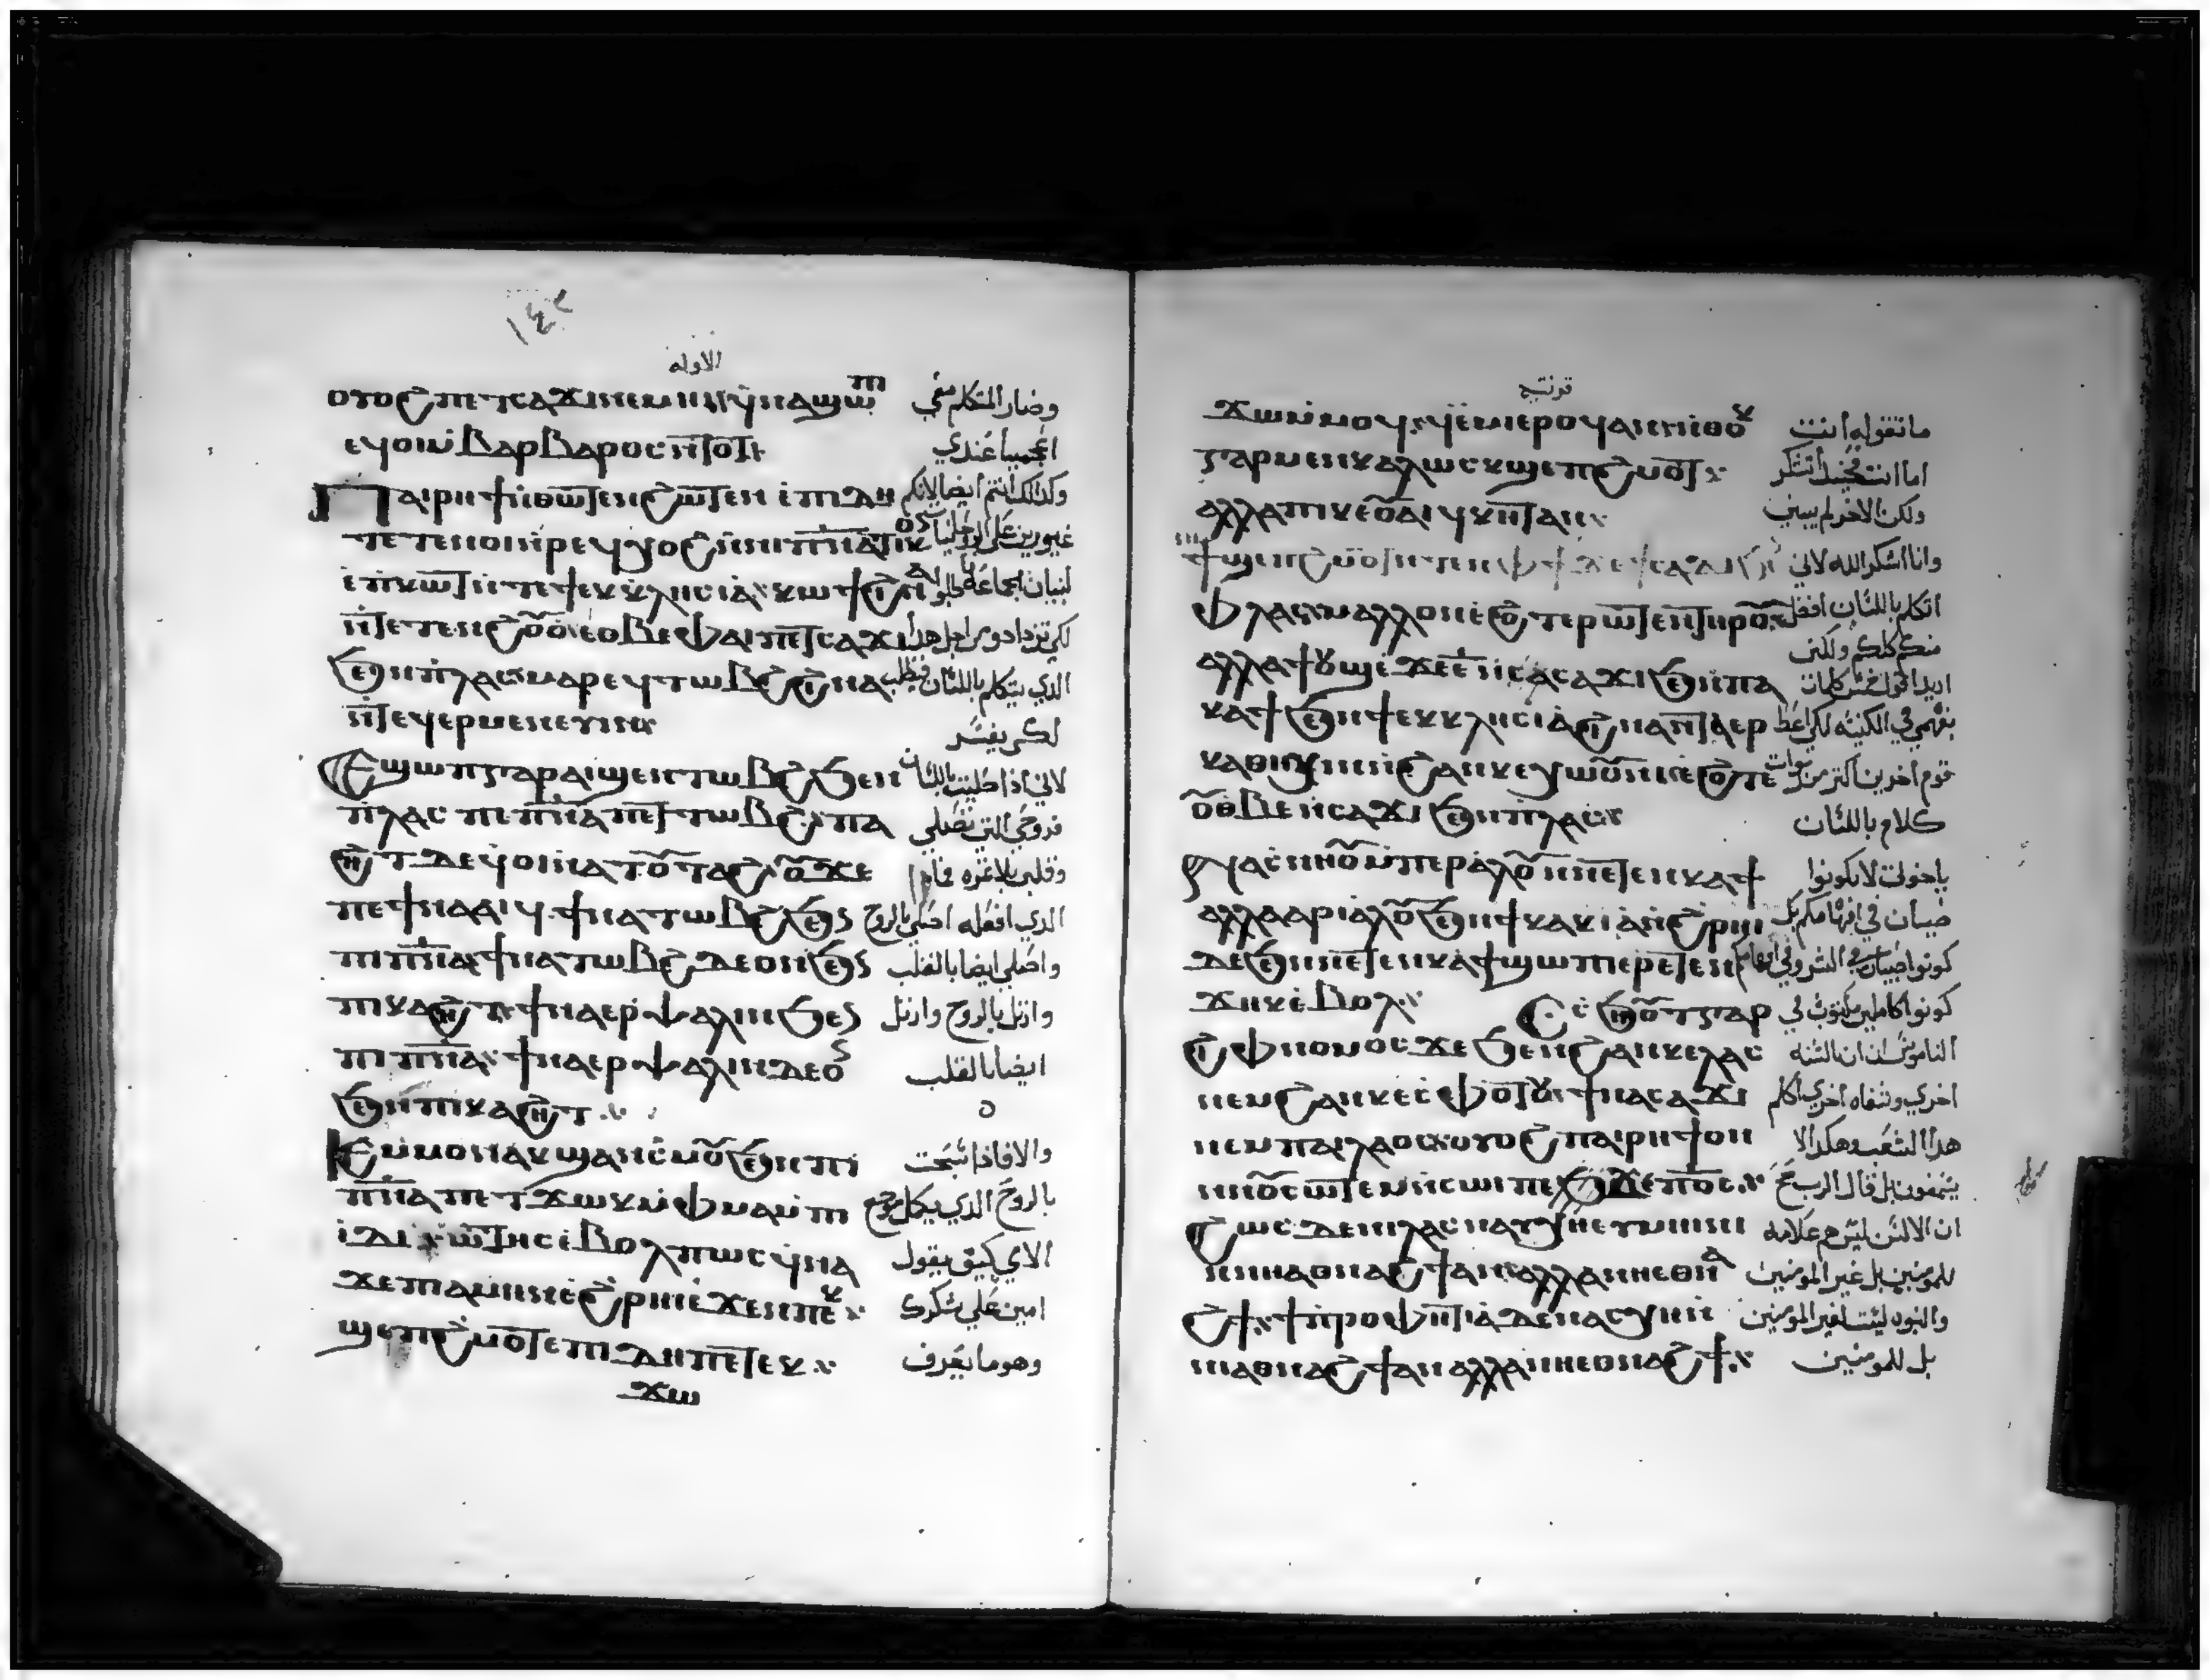 ١٤٢
الاوله
ⲟⲩⲟϩ ⲡⲉⲧⲥⲁϫⲓ ⲛⲉⲙⲏⲓ ϥⲛⲁϣⲱⲡ وصار المتكلم معي
ⲉϥⲟⲓⲙ̇ⲃⲁⲣⲃⲁⲣⲟⲥ ⲛ̄ⲧⲟⲧ اعجمياً عندي
ⲡⲁⲓⲣⲏϯ ⲛ̇ⲑⲱⲧⲉⲛ ϩⲱⲧⲉⲛ ⲉⲡⲓⲇⲏ وكذالك انتم ايضا لانكم
ⲧⲉⲧⲉⲛⲟⲓ ⲛ̇ⲣⲉϥⲭⲟϩ ⲉⲛⲓⲡⲛ̄ⲁⲧⲓⲕⲟⲛ
ⲉⲡⲕⲱⲧ ⲛ̇ⲧⲉ ϯⲉⲕⲕⲗⲏⲥⲓⲁ ⲕⲱϯ ϩⲓⲛⲁ لبنيان الجماعة اطلبوا
ⲛ̄ⲧⲉⲧⲉⲛⲉⲣϩⲟⲩⲟ ⲉⲑⲃⲉ ⲫⲁⲓ ⲡⲉⲧⲥⲁϫⲓ
ϧⲉⲛ ⲡⲗⲁⲥ ⲙⲁⲣⲉϥⲧⲱⲃϩ ϩⲓⲛⲁ الذي يتكلم باللسان فيطلب
ⲛ̄ⲧⲉϥⲉⲣⲙⲉⲛⲉⲩⲓⲛ لكي يفسر
ⲉϣⲱⲡ ⲅⲁⲣ ⲁⲓϣⲉⲛⲧⲱⲃϩ ϧⲉⲛ لاني اذا صليت باللسان
ⲡⲗⲁⲥ ⲡⲉⲡⲛ̄ⲁ ⲡⲉⲧⲧⲱⲃϩ ⲡⲁ فروحي التي تصلي
ϩⲏⲧ ⲇⲉ ϥⲟⲓ ⲛ̇ⲁⲧⲟⲩⲧⲁϩ ⲟⲩ ϫⲉ وقلبي بلا ثمره فما
ⲡⲉϯⲛⲁⲁⲓϥ ϯⲛⲁⲧⲱⲃϩ ϧⲉⲛ الذي افعله اصلي بالروح
ⲡⲓⲡⲛ̄ⲁ ϯⲛⲁⲧⲱⲃϩ ⲇⲉ ⲟⲛ ϧⲉⲛ واصلي ايضا بالقلب
ⲡⲓⲕⲁϩⲏⲧ ϯⲛⲁⲉⲣⲯⲁⲗⲓⲛ ϧⲉⲛ وارتل بالروح وارتل
ⲡⲓⲡⲛ̄ⲁ ϯⲛⲁⲉⲣⲯⲁⲗⲓⲛ ⲇⲉ ⲟⲛ ايضا بالقلب
ϧⲉⲛ ⲡⲓⲕⲁϩⲏⲧ
ⲉⲙⲙⲟⲛ ⲁⲕϣⲁⲛⲥⲙⲟⲩ ϧⲉⲛ ⲡⲓ والا فاذا سبحت
ⲡⲛ̄ⲁ ⲡⲉⲧϫⲱⲕ ⲙ̇ⲫⲙⲁ ⲙ̇ⲡ بالروح الذي يكمل موضع
ⲓⲇⲓⲱⲧⲏⲥ ⲉⲃⲟⲗ ⲡⲱⲥ ϥⲛⲁ الامي كيف يقول
ϫⲉ ⲡⲁⲙⲏⲛ ⲉϩⲣⲏⲓ ⲉϫⲉⲛ ⲡⲉⲕ امين علي شكرك
ϣⲉⲡϩⲙⲟⲧ ⲉⲡⲓⲇⲏ ⲡⲉⲧⲉⲕ وهو ما يعرف
ϫⲱ
قرنتيه
ϫⲱ ⲙ̇ⲙⲟϥ ϥⲉⲙⲓ ⲉⲣⲟϥ ⲁⲛ ⲛ̇ⲑⲟⲕ ما تقوله انت
ⲅⲁⲣ ⲙⲉⲛ ⲕⲁⲗⲱⲥ ⲕϣⲉⲡϩⲙⲟⲧ اما انت فجيد تشكر
ⲁⲗⲗⲁ ⲡⲓⲕⲉⲟⲩⲁⲓ ϥⲕⲏⲧ ⲁⲛ ولكن الاخر لم يبني
ϯϣⲉⲡϩⲙⲟⲧ ⲛ̇ⲧⲉⲛ ⲫϯ ϫⲉ ϯⲥⲁϫⲓ وانا اشكر الله لاني
ⲫⲗⲁⲥ ⲙⲁⲗⲗⲟⲛ ⲉϩⲟⲧⲉⲣⲱⲧⲉⲛ ⲧⲏⲣⲟⲩ اتكلم باللسان افضل
منكم كلكم ولكني
ⲁⲗⲗⲁ ϯⲟⲩⲱϣ ⲉϫⲉ ⲉ̄ ⲛ̇ⲥⲁϫⲓ ϧⲉⲛ ⲡⲁ اريد اقول خمس كلمات
ⲕⲁϯ ϧⲉⲛ ϯⲉⲕⲕⲗⲏⲥⲓⲁ ϩⲓⲛⲁ ⲛ̄ⲧⲁⲉⲣ بفهمي في الكنيسه لكي اعظ
ⲕⲁⲑⲏⲭⲓⲛ ⲛ̇ϩⲁⲛⲕⲉⲭⲱⲟⲩⲛⲓ ⲉϩⲟⲧⲉ قوم اخرين اكثر من ربوات
ⲟⲩⲑⲃⲉ ⲛ̇ⲥⲁϫⲓ ϧⲉⲛ ⲡⲗⲁⲥ كلام باللسان
ⲛⲁⲥⲛⲏⲟⲩ ⲙ̇ⲡⲉⲣⲉⲣⲁⲗⲟⲩ ϧⲉⲛ ⲛⲉⲧⲉⲛⲕⲁϯ ياخوتي لا تكونوا
ⲁⲗⲗⲁ ⲁⲣⲓⲁⲗⲟⲩ ϧⲉⲛ ϯⲕⲁⲕⲓⲁ ⲛ̇ϩⲣⲏⲓ صبيان في افهامكم بل
ⲇⲉ ϧⲉⲛ ⲛⲉⲧⲉⲛⲕⲁϯ ϣⲱⲡⲓ ⲉⲣⲉⲧⲉⲛ كونوا صبيان في الشر وفي افهامكم
ϫⲏⲕ ⲉⲃⲟⲗ ⲥⲥϧⲏⲟⲩⲧ ⲅⲁⲣ كونوا كاملين مكتوب في
ϩⲓ ⲫⲛⲟⲙⲟⲥ ϫⲉ ϧⲉⲛ ϩⲁⲛⲕⲉⲗⲁⲥ الناموس ان بالسنه
ⲛⲉⲙ ϩⲁⲛⲕⲉⲥⲫⲟⲧⲟⲩ ϯⲛⲁⲥⲁϫⲓ اخري وشفاه اخري اكلم
ⲛⲉⲙ ⲡⲁⲓⲗⲁⲟⲥ ⲟⲩⲟϩ ⲡⲁⲓⲣⲏϯ ⲟⲛ هذا الشعب وهكذا لا
ⲛⲛⲟⲩⲥⲱⲧⲉⲙ ⲛ̇ⲥⲱⲓ ⲡⲉϫⲉ ⲡⲟ̄ⲥ يسمعون بل قال الرب
ϩⲱⲥⲇⲉ ⲛⲓⲗⲁⲥ ⲛⲁⲩⲭⲏ ⲉⲩⲙⲏⲓⲛⲓ ان الالسن ليس هم علامه
ⲛ̇ⲛⲏⲉⲑⲛⲁϩϯ ⲁⲛ ⲁⲗⲗⲁ ⲛⲏⲉⲧⲉⲛ للمومنين بل غير المومنين
ϩϯ ϯⲡⲣⲟⲫⲏⲧⲓⲁ ⲇⲉ ⲛⲁⲥⲭⲏ ⲛ̇ والنبوه ليست لغير المومنين
ⲛⲓⲁⲑⲛⲁϩϯ ⲁⲛ ⲁⲗⲗⲁ ⲛⲏⲉⲑⲛⲁϩϯ بل للمومنين